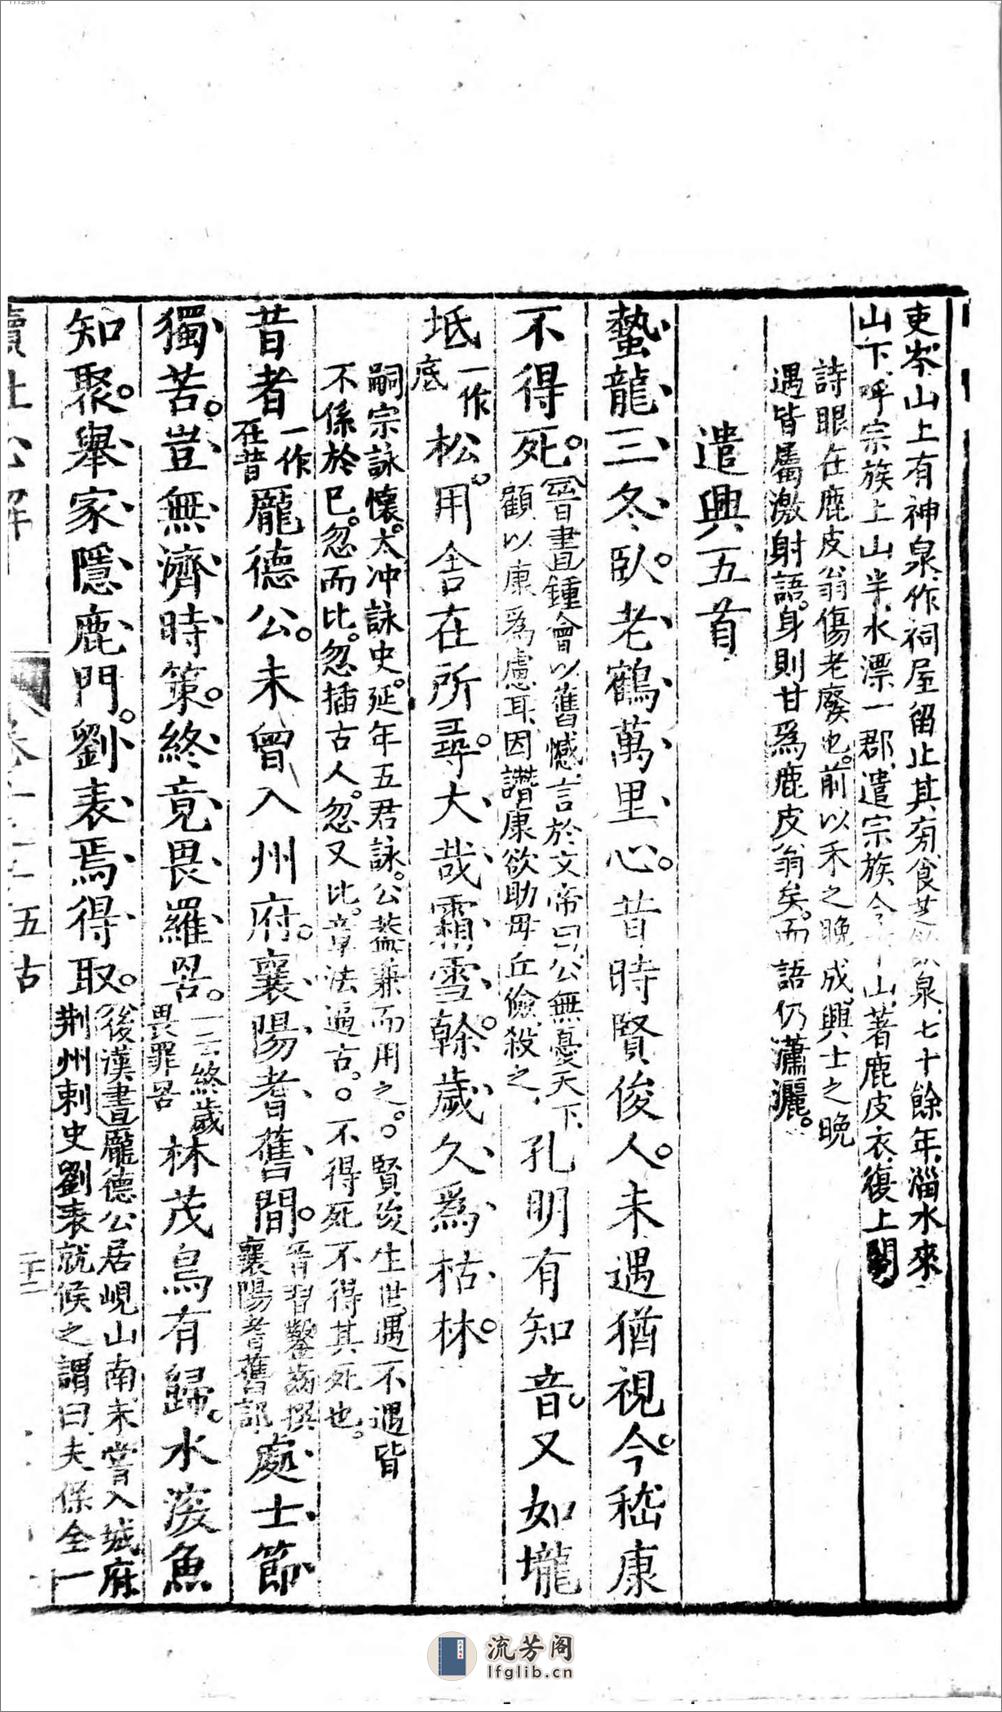 吏岑山上有神泉作祠屋留止其旁食芝飲泉七十餘年淄水來
山下呼宗族上山半水漂一郡遣宗族令下山著鹿皮衣復上閣
詩眼在鹿皮翁傷老廢也前以禾之晚成興士之晚
遇皆屬激射語身則甘爲鹿皮翁矣而語仍瀟灑
遣興五首
蟄龍三冬臥老鶴萬里心昔時賢俊人未遇猶視今嵇康
不得死晉書鍾會以舊憾言於文帝曰公無憂天下
顧以康爲慮耳因譖康欲助毋丘儉殺之孔明有知音又如壠
坻一作底松用舍在所尋大哉霜雪榦歲久爲枯林
嗣宗詠懷太冲詠史延年五君詠公葢兼而用之賢俊生世遇不遇皆
不係於己忽而比忽插古人忽又比章法逼古不得死不得其死也
昔者一作在昔龐德公未曾入州府襄陽耆舊間晉習鑿齒撰襄陽耆舊記處士節
獨苦豈無濟時策終竟畏羅罟一云終歲畏罪罟林茂鳥有歸水深魚
知聚舉家隱鹿門劉表焉得取後漢書龐德公居峴山南未嘗入城府
荆州刺史劉表就候之謂曰夫保全一
讀杜心解
卷一之二 五古
流芳阁
lfglib.cn